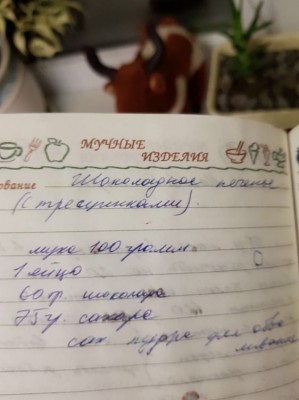 МУЧНЫЕ
ИЗДЕЛИЯ
ование Шоколадное печенье
(с трещинками).
мука 100 грамм
1 яйцо
60 гр. шоколада
75 гр. сахара
сах. пудра для обва
ливания